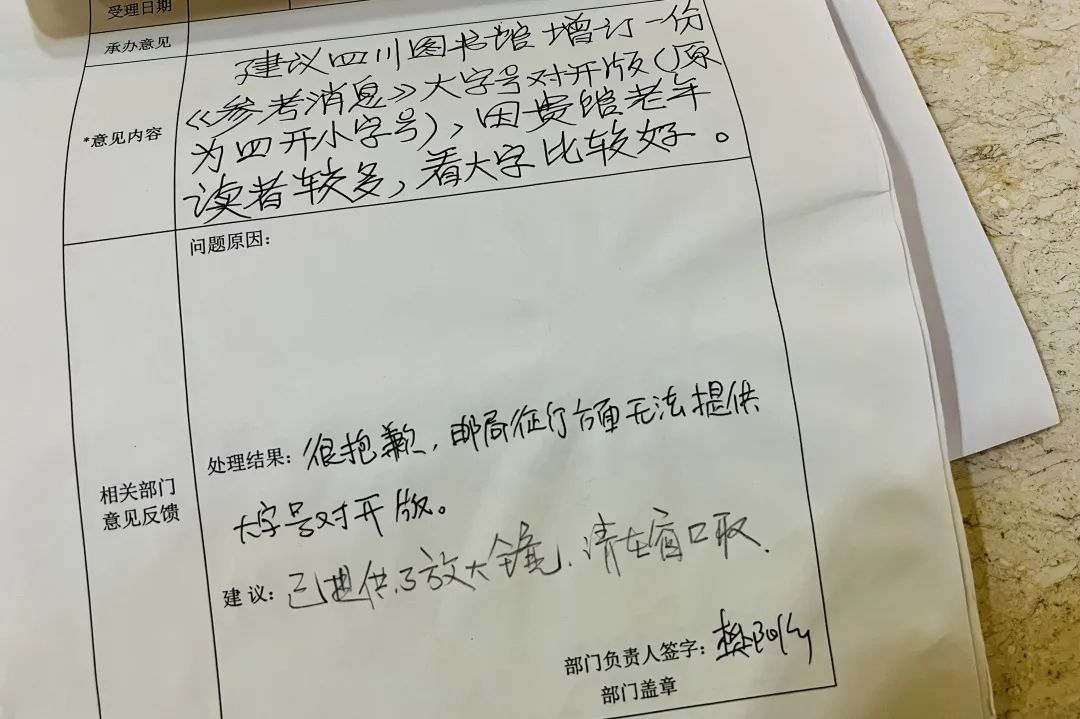 受理日期
承办意见
*意见内容
建议四川图书馆增订一份
《参考消息》大字号对开版(原
为四开小字号),因贵馆老年
读者较多,看大字比较好。
问题原因:
相关部门
意见反馈
处理结果:很抱歉,邮局征订方面无法提供
大字号对开版。
建 议:已提供了放大镜,请在窗口取.
部门负责人签字:
部门盖章